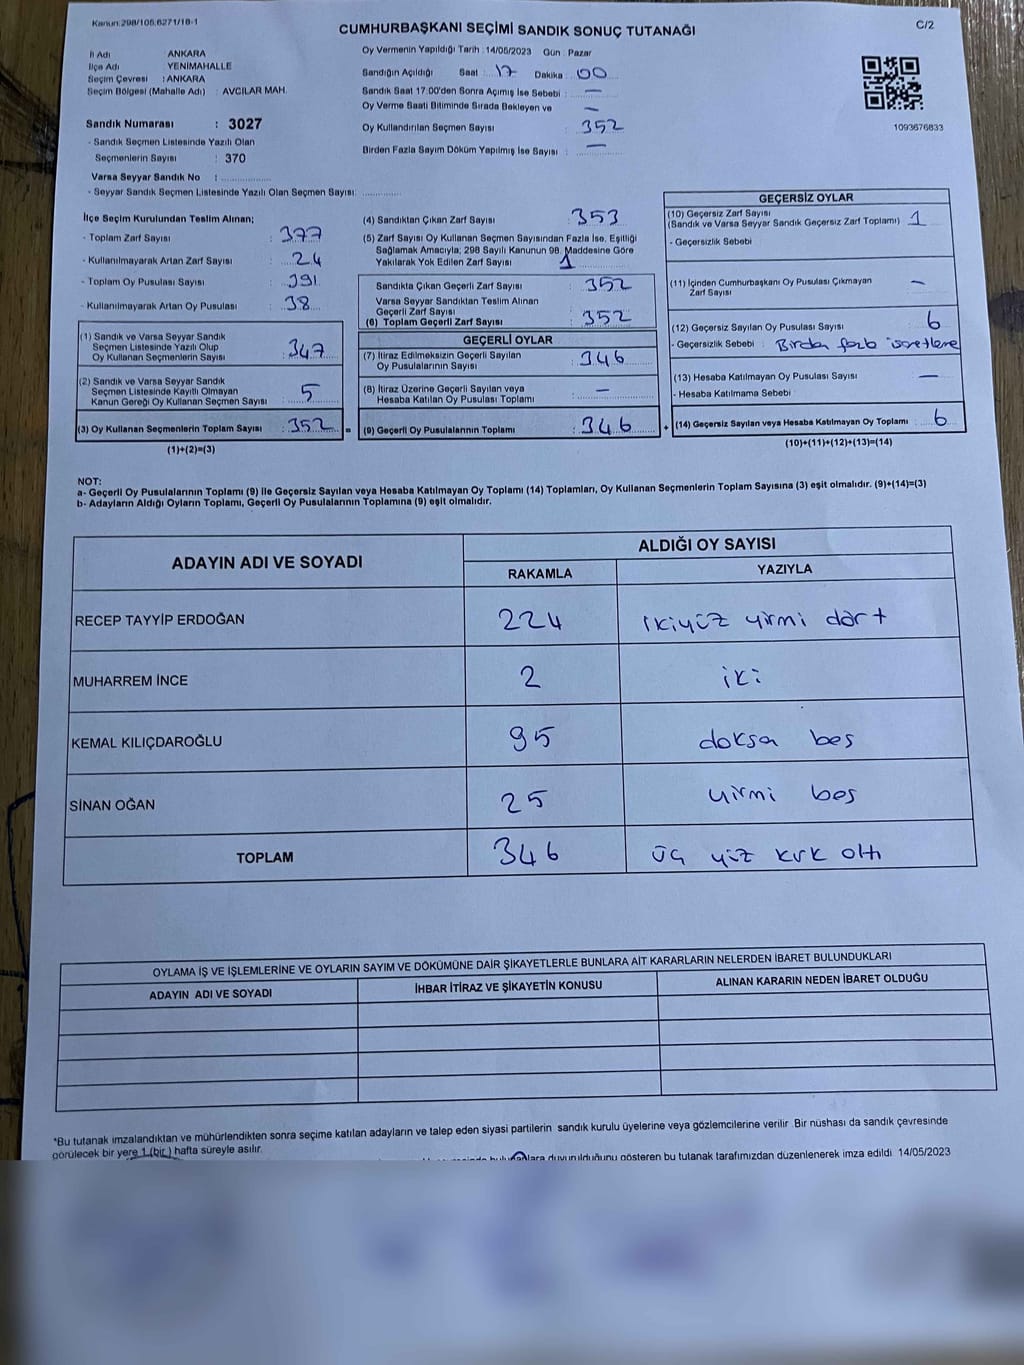 Kanun:298/105,6271/18-1
CUMHURBAŞKANI SEÇİMİ SANDIK SONUÇ TUTANAĞI
C/2
İl Adı : ANKARA
İlçe Adı : YENİMAHALLE
Seçim Çevresi : ANKARA
Seçim Bölgesi (Mahalle Adı) : AVCILAR MAH.
Sandık Numarası : 3027
- Sandık Seçmen Listesinde Yazılı Olan
Seçmenlerin Sayısı : 370
Varsa Seyyar Sandık No :
- Seyyar Sandık Seçmen Listesinde Yazılı Olan Seçmen Sayısı:
Oy Vermenin Yapıldığı Tarih : 14/05/2023 Gün : Pazar
Sandığın Açıldığı Saat : 17 Dakika : 00
Sandık Saat 17:00'den Sonra Açımış İse Sebebi : —
Oy Verme Saati Bitiminde Sırada Bekleyen ve —
Oy Kullandırılan Seçmen Sayısı : 352
Birden Fazla Sayım Döküm Yapılmış İse Sayısı : —
1093676833
İlçe Seçim Kurulundan Teslim Alınan;
- Toplam Zarf Sayısı : 377
- Kullanılmayarak Artan Zarf Sayısı : 24
- Toplam Oy Pusulası Sayısı : 391
- Kullanılmayarak Artan Oy Pusulası : 38
(1) Sandık ve Varsa Seyyar Sandık
Seçmen Listesinde Yazılı Olup
Oy Kullanan Seçmenlerin Sayısı : 347
(2) Sandık ve Varsa Seyyar Sandık
Seçmen Listesinde Kayıtlı Olmayan
Kanun Gereği Oy Kullanan Seçmen Sayısı : 5
(3) Oy Kullanan Seçmenlerin Toplam Sayısı : 352
(1)+(2)=(3)
(4) Sandıktan Çıkan Zarf Sayısı : 353
(5) Zarf Sayısı Oy Kullanan Seçmen Sayısından Fazla İse, Eşitliği
Sağlamak Amacıyla; 298 Sayılı Kanunun 98. Maddesine Göre
Yakılarak Yok Edilen Zarf Sayısı : 1
Sandıkta Çıkan Geçerli Zarf Sayısı : 352
Varsa Seyyar Sandıktan Teslim Alınan
Geçerli Zarf Sayısı
(6) Toplam Geçerli Zarf Sayısı : 352
GEÇERLİ OYLAR
(7) İtiraz Edilmeksizin Geçerli Sayılan
Oy Pusulalarının Sayısı : 346
(8) İtiraz Üzerine Geçerli Sayılan veya
Hesaba Katılan Oy Pusulası Toplamı : —
= (9) Geçerli Oy Pusulalarının Toplamı : 346
GEÇERSİZ OYLAR
(10) Geçersiz Zarf Sayısı
(Sandık ve Varsa Seyyar Sandık Geçersiz Zarf Toplamı) : 1
- Geçersizlik Sebebi
(11) İçinden Cumhurbaşkanı Oy Pusulası Çıkmayan
Zarf Sayısı —
(12) Geçersiz Sayılan Oy Pusulası Sayısı : 6
- Geçersizlik Sebebi : Birden fazla işaretleme
(13) Hesaba Katılmayan Oy Pusulası Sayısı : —
- Hesaba Katılmama Sebebi
+ (14) Geçersiz Sayılan veya Hesaba Katılmayan Oy Toplamı : 6
(10)+(11)+(12)+(13)=(14)
NOT:
a- Geçerli Oy Pusulalarının Toplamı (9) ile Geçersiz Sayılan veya Hesaba Katılmayan Oy Toplamı (14) Toplamları, Oy Kullanan Seçmenlerin Toplam Sayısına (3) eşit olmalıdır. (9)+(14)=(3)
b- Adayların Aldığı Oyların Toplamı, Geçerli Oy Pusulalarının Toplamına (9) eşit olmalıdır.
ADAYIN ADI VE SOYADI ALDIĞI OY SAYISI
RAKAMLA YAZIYLA
RECEP TAYYİP ERDOĞAN 224 ikiyüz yirmi dört
MUHARREM İNCE 2 iki
KEMAL KILIÇDAROĞLU 95 doksa beş
SİNAN OĞAN 25 yirmi beş
TOPLAM 346 üç yüz kırk altı
OYLAMA İŞ VE İŞLEMLERİNE VE OYLARIN SAYIM VE DÖKÜMÜNE DAİR ŞİKAYETLERLE BUNLARA AİT KARARLARIN NELERDEN İBARET BULUNDUKLARI
ADAYIN ADI VE SOYADI İHBAR İTİRAZ VE ŞİKAYETİN KONUSU ALINAN KARARIN NEDEN İBARET OLDUĞU
*Bu tutanak imzalandıktan ve mühürlendikten sonra seçime katılan adayların ve talep eden siyasi partilerin sandık kurulu üyelerine veya gözlemcilerine verilir. Bir nüshası da sandık çevresinde
görülecek bir yere 1 (bir) hafta süreyle asılır.
duyurulduğunu gösteren bu tutanak tarafımızdan düzenlenerek imza edildi. 14/05/2023